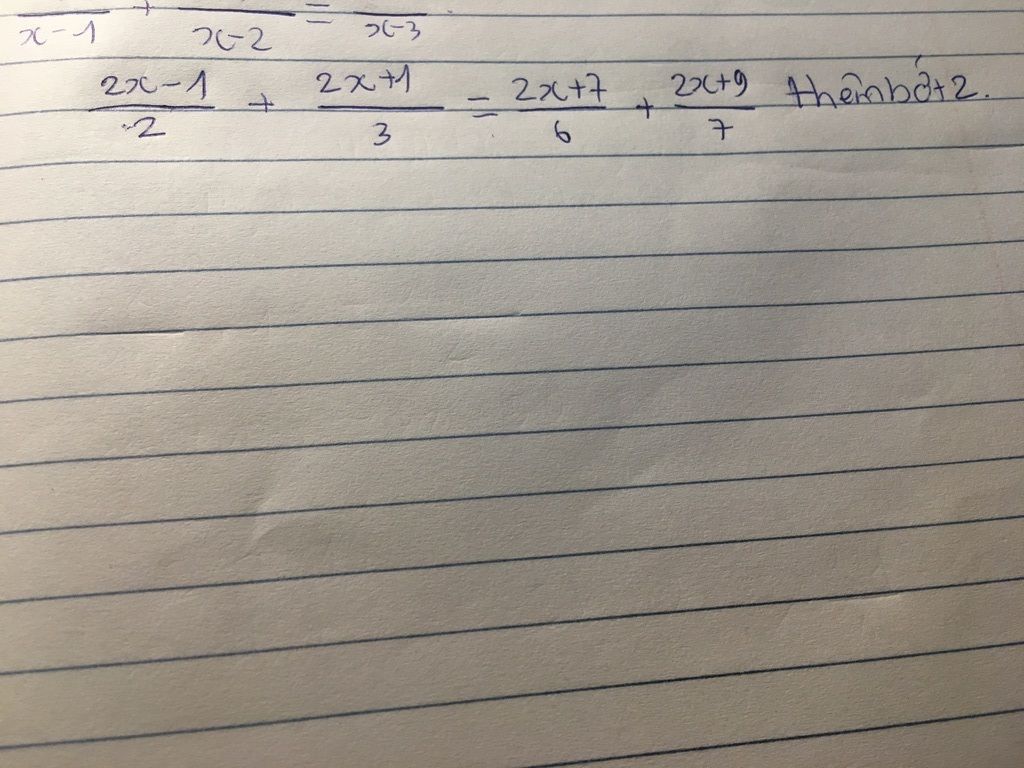 x-1 + x-2 = x-3
2x-1/2 + 2x+1/3 = 2x+7/6 + 2x+9/7 thêm bớt 2.